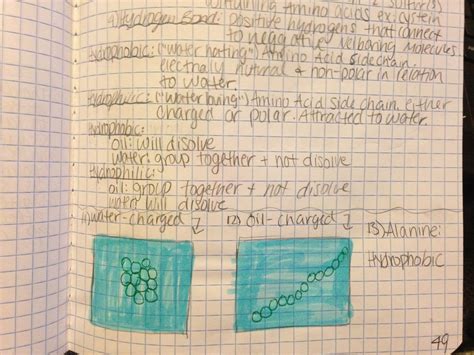 containing Amino acids ex: cystein
4) Hydrogen Bond: positive hydrogens that connect
to negative neiboring molecules.
Hydrophobic: ("water hating") Amino Acid side chain.
electrally nutural & non-polar in relation
to water.
Hydrophilic: ("water loving") Amino Acid side chain. either
charged or polar. Attracted to water.
Hydrophobic:
oil: will disolve
water: group together + not disolve
Hydrophilic:
oil: group together + not disolve
water will disolve
11) water-charged
12) Oil-charged
13) Alanine:
Hydrophobic
49